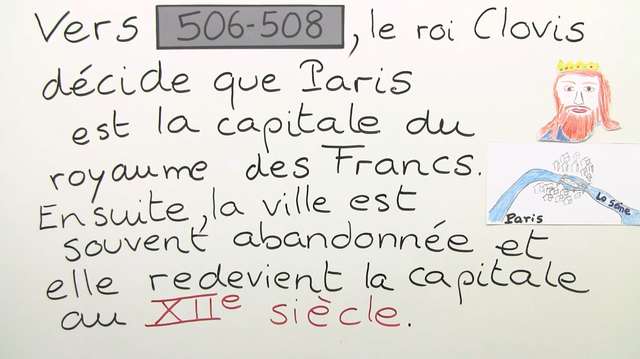 Vers 506-508, le roi Clovis
décide que Paris
est la capitale du
royaume des Francs.
Ensuite, la ville est
souvent abandonnée et
elle redevient la capitale
au XIIe siècle.
La Seine
Paris